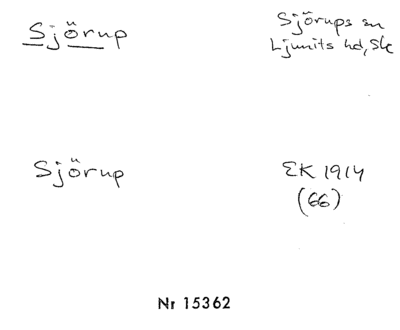 Sjörup
Sjörups sn
Ljunits hd, Sk
Sjörup
EK 1914
(66)
Nr 15362